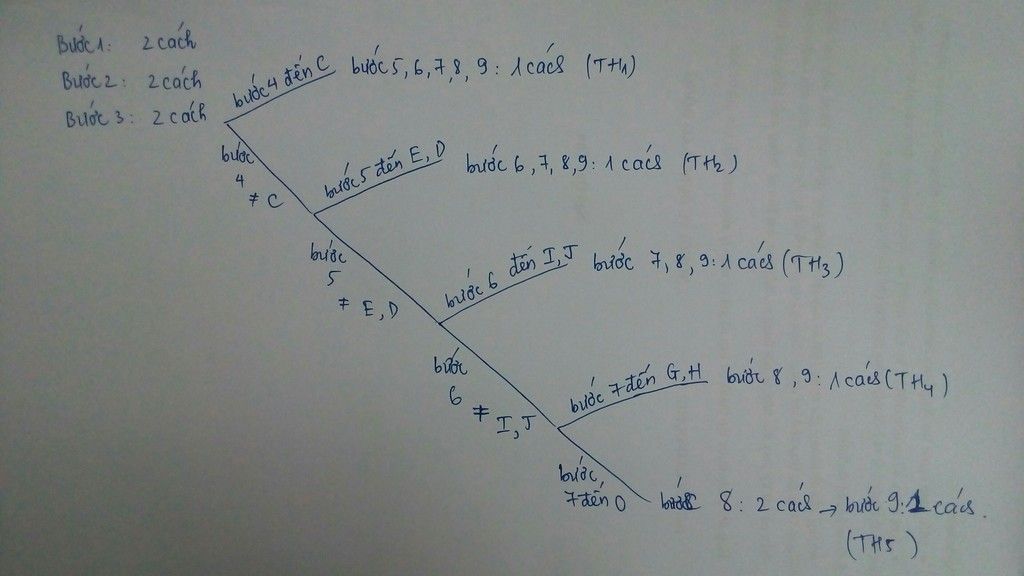 Bước 1: 2 cách
Bước 2: 2 cách
Bước 3: 2 cách
bước 4 đến C bước 5, 6, 7, 8, 9: 1 cách (TH1)
bước
4
≠ C
bước 5 đến E, D bước 6, 7, 8, 9: 1 cách (TH2)
bước
5
≠ E, D
bước 6 đến I, J bước 7, 8, 9: 1 cách (TH3)
bước
6
≠ I, J
bước 7 đến G, H bước 8, 9: 1 cách (TH4)
bước
7 đến O bước 8: 2 cách → bước 9: 1 cách.
(TH5)